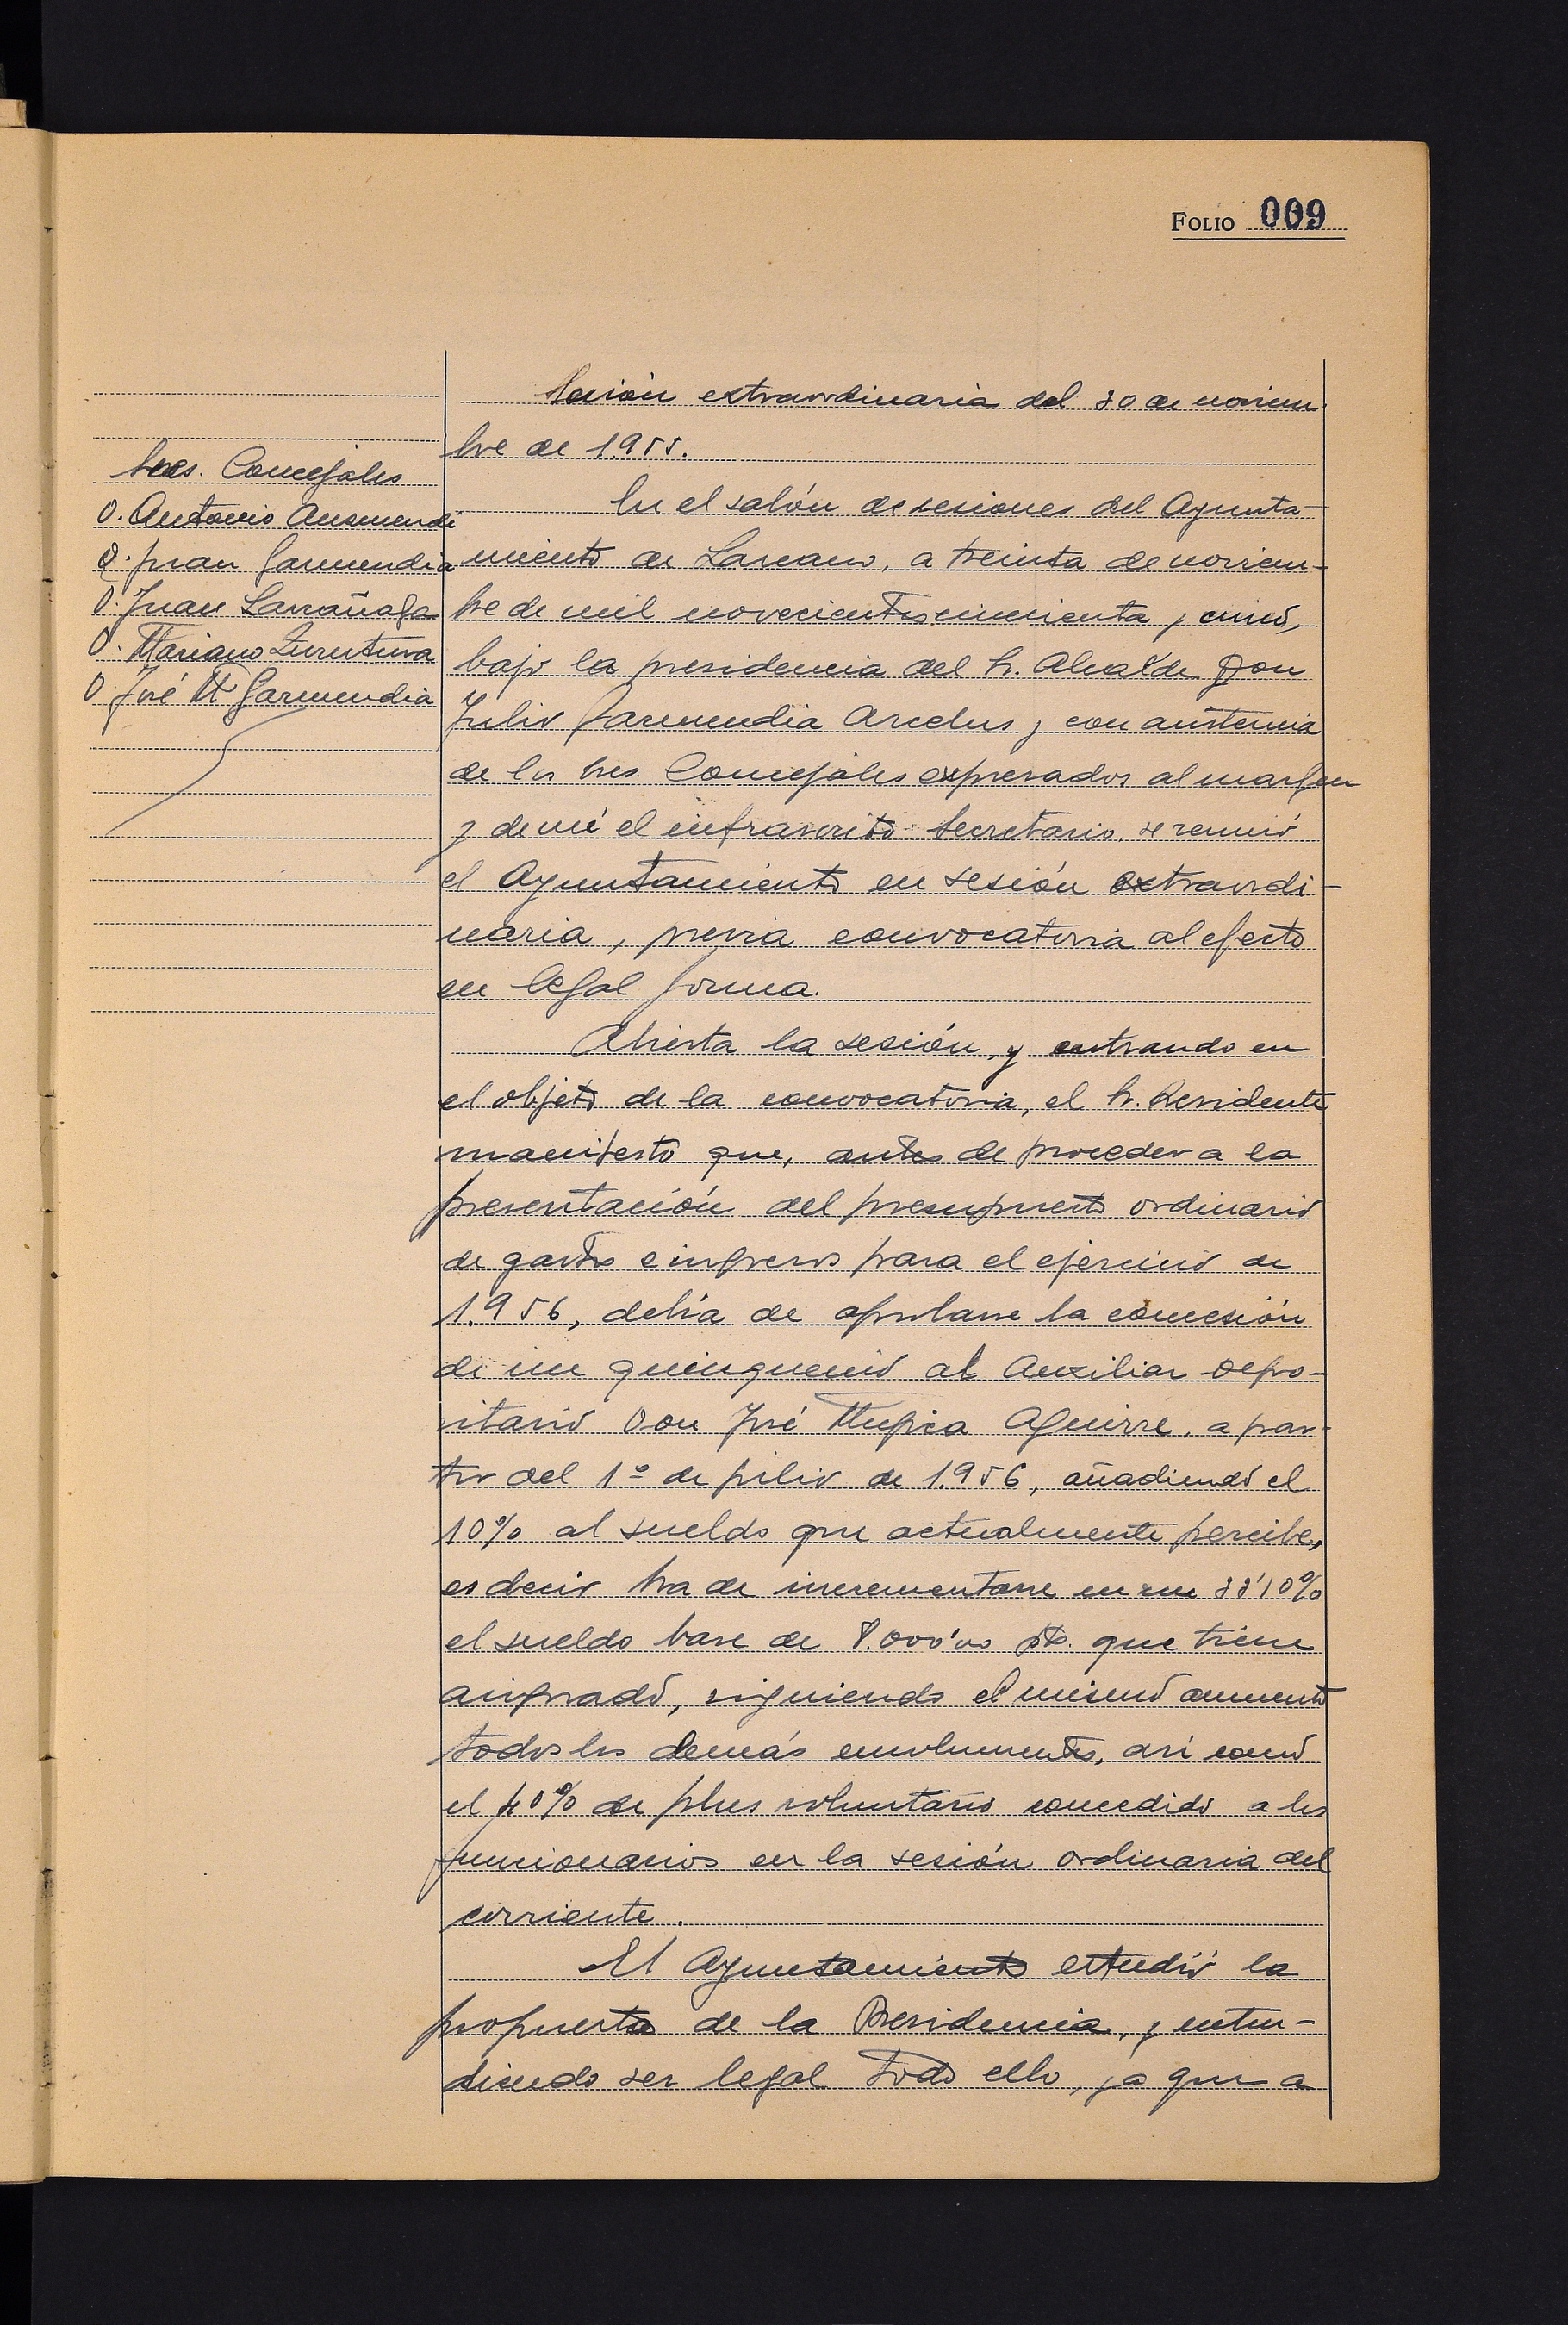 FOLIO 009
Sesión extraordinaria del 30 de noviem-
bre de 1.955.
Sres. Concejales
D. Antonio Ausmendi
D. Juan Garmendia
D. Juan Larrañaga
D. Mariano Zurutuza
D. José Mª Garmendia
En el salón de sesiones del Ayunta-
miento de Lazcano, a treinta de noviem-
bre de mil novecientos cincuenta y cinco,
bajo la presidencia del Sr. Alcalde Don
Julio Garmendia Arcelus y con asistencia
de los Sres. Concejales expresados al margen
y de mí el infrascrito Secretario, se reunió
el Ayuntamiento en sesión extraordi-
naria, previa convocatoria al efecto
en legal forma.
Abierta la sesión, y entrando en
el objeto de la convocatoria, el Sr. Presidente
manifestó que, antes de proceder a la
presentación del presupuesto ordinario
de gastos e ingresos para el ejercicio de
1.956, debía de aprobarse la concesión
de un quinquenio al Auxiliar Depo-
sitario Don José Mugica Aguirre, a par-
tir del 1º de julio de 1.956, añadiendo el
10% al sueldo que actualmente percibe,
es decir ha de incrementarse en un 33'10%
el sueldo base de 8.000'00 pts. que tiene
asignado, siguiendo el mismo aumento
todos los demás emolumentos, así como
el 40% de plus voluntario concedido a los
funcionarios en la sesión ordinaria del
corriente.
El Ayuntamiento estudió la
propuesta de la Presidencia, y enten-
diendo ser legal todo ello, ya que a